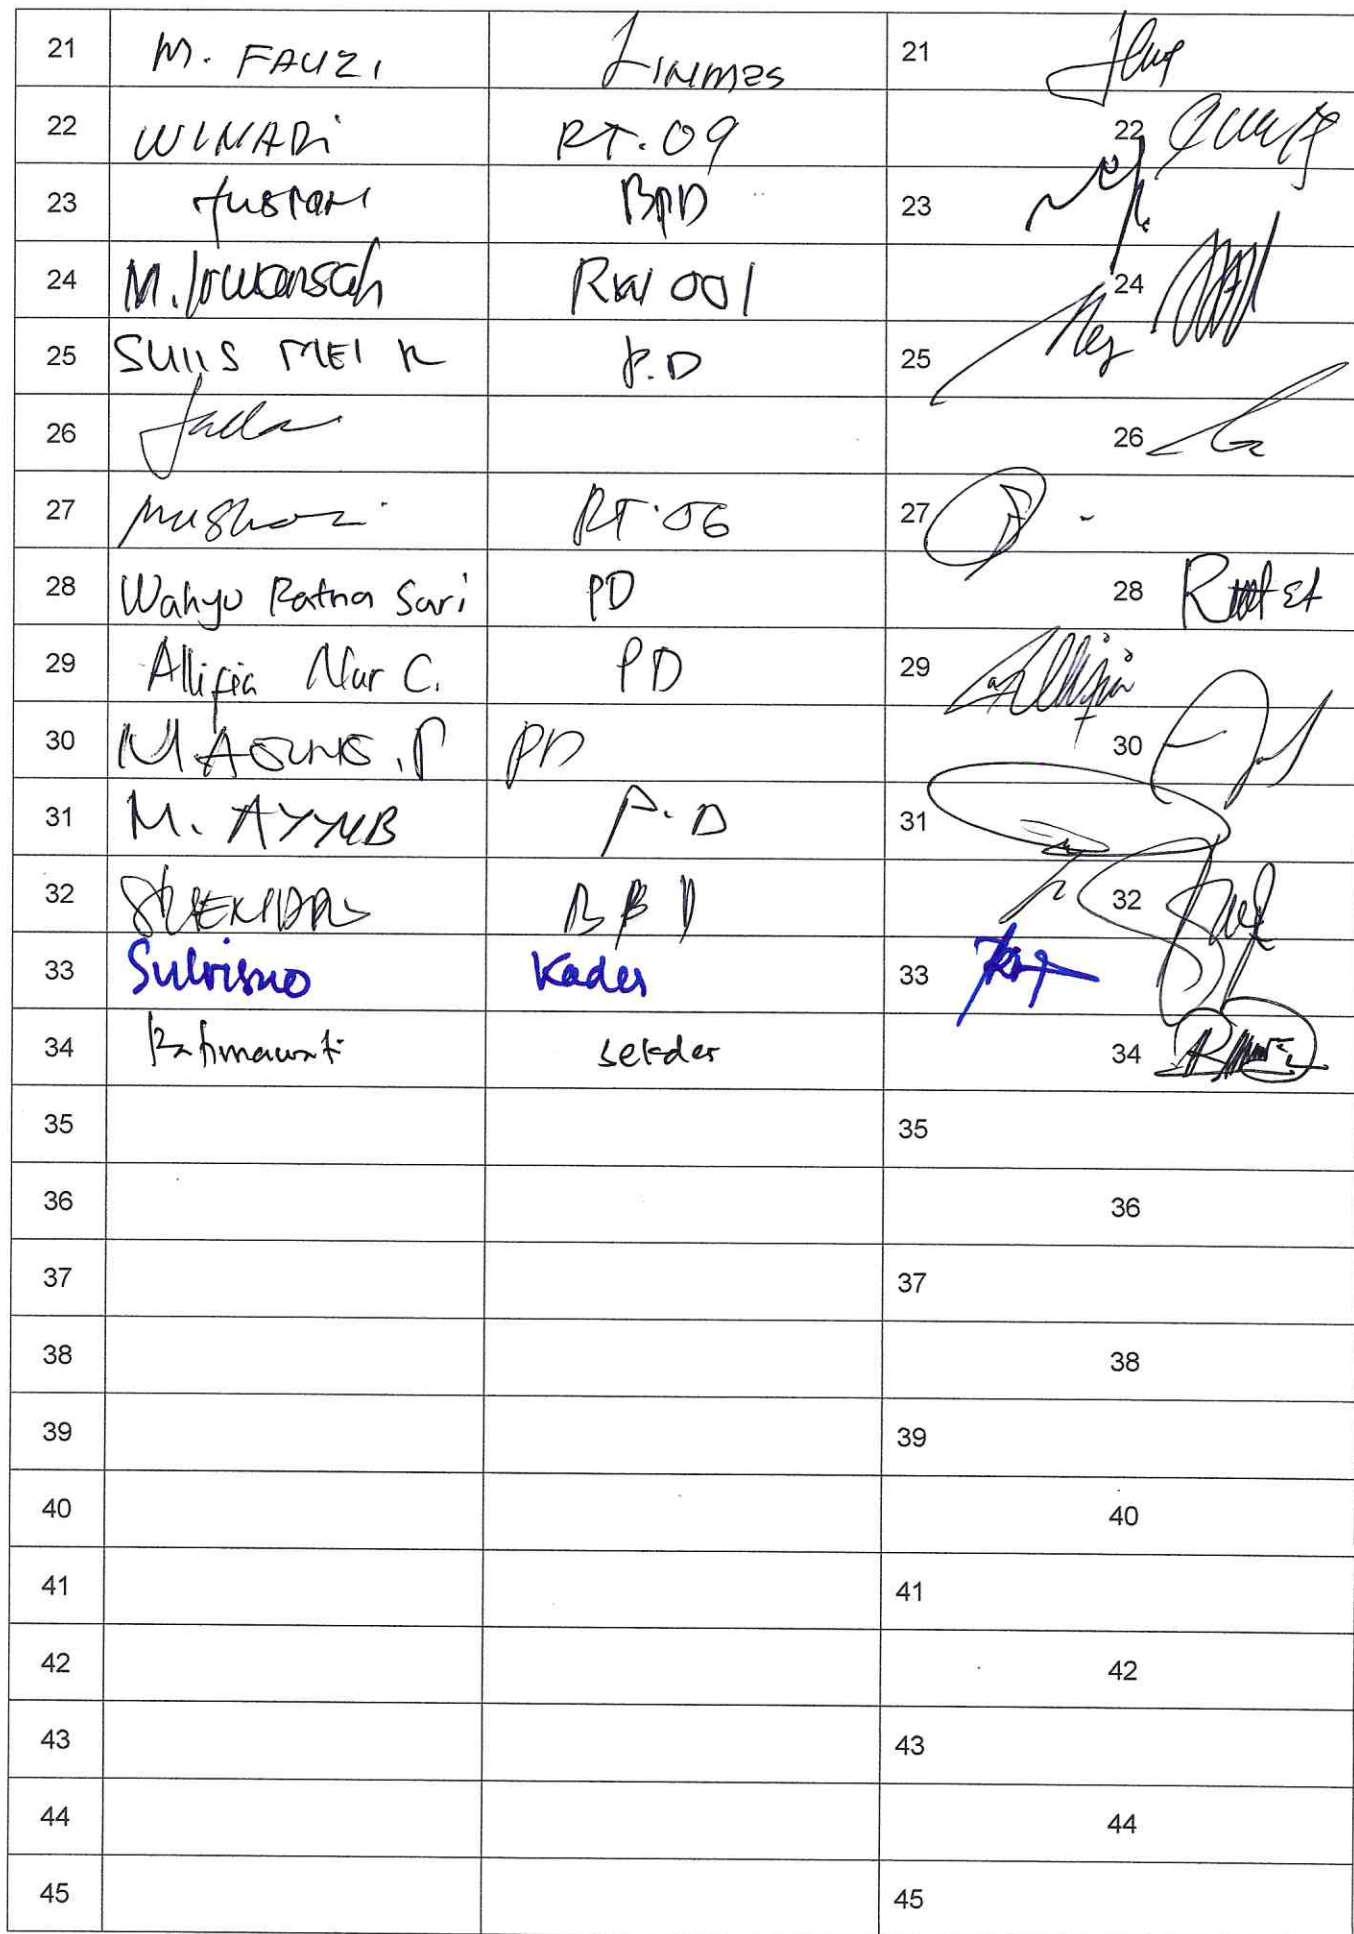 21 M. FAUZI Linmas 21
22 WINARi RT.09 22
23 BPD 23
24 M. RW 001 24
25 SULIS MEI R P.D 25
26 26
27 RT.06 27
28 Wahyu Ratna Sari PD 28
29 Allifia Nur C. PD 29
30 M AGUNG .P PD 30
31 M. AYYUB P.D 31
32 BPD 32
33 Sutrisno Kades 33
34 Rahmawati sekdes 34
35 35
36 36
37 37
38 38
39 39
40 40
41 41
42 42
43 43
44 44
45 45